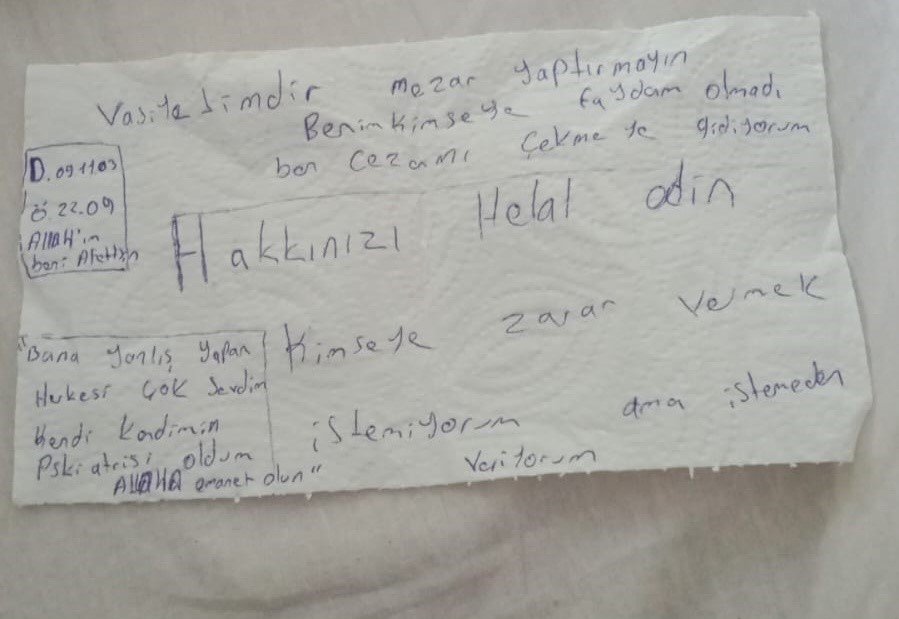 Vasiyetimdir mezar yaptırmayın
Benim kimseye faydam olmadı
ben cezamı çekmeye gidiyorum
D. 09.11.03
Ö 22.09
ALLAH'ım
beni Affetsin
Hakkınızı Helal edin
Kimseye zarar vermek
istemiyorum ama istemeden
veriyorum
"Bana yanlış yapan
Herkesi çok sevdim
Kendi kendimin
Pskiatrisi oldum
ALLAHA emanet olun"